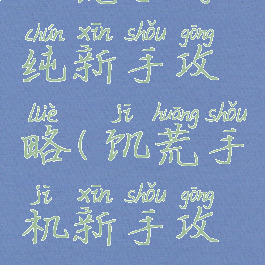 chún xīn shǒu gōng
纯新手攻
lüè jī huāng shǒu
略(饥荒手
jī xīn shǒu gōng
机新手攻